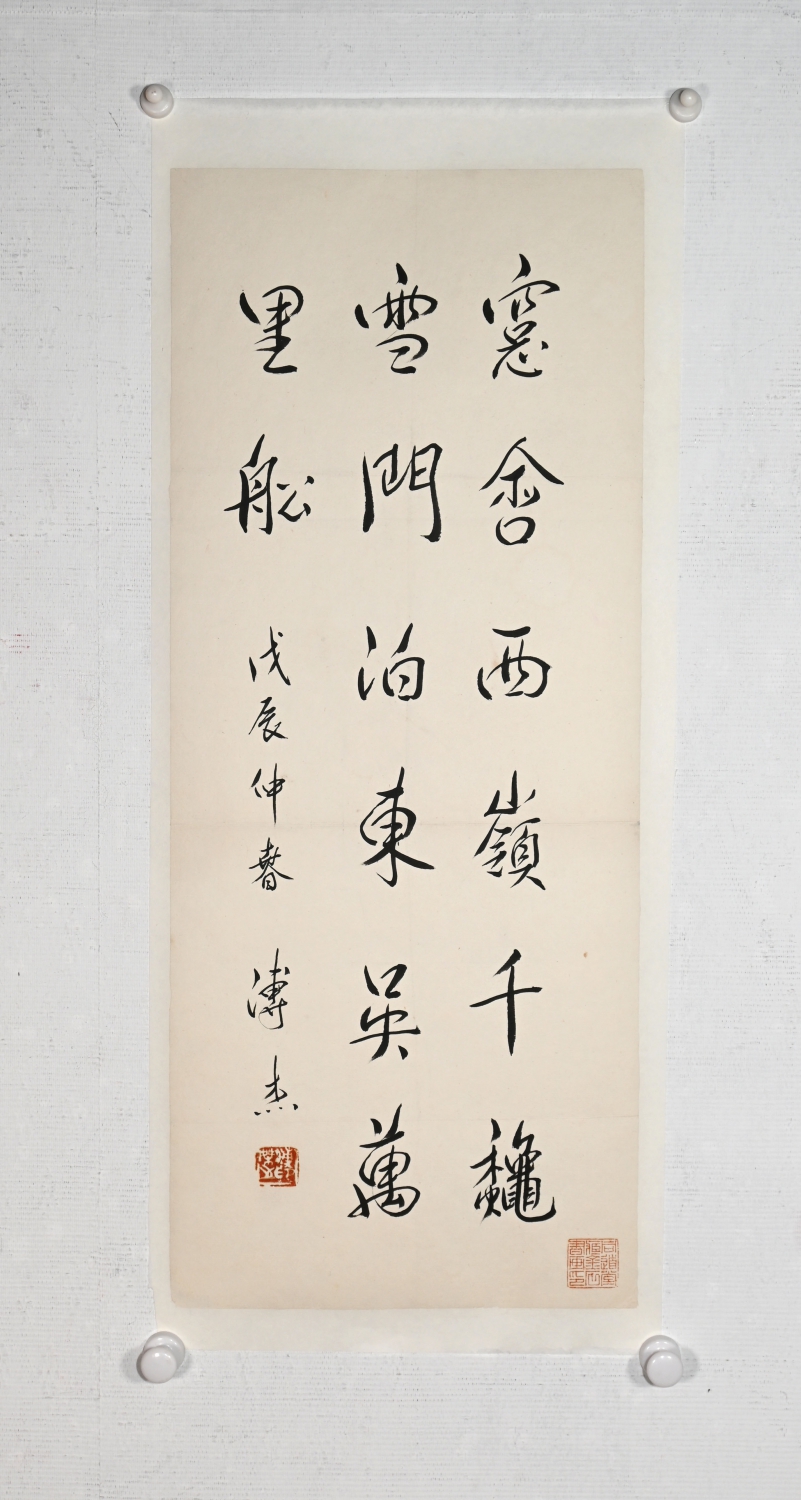 窓含西嶺千龝
雪門泊東吳萬
里船
戊辰仲春 溥杰